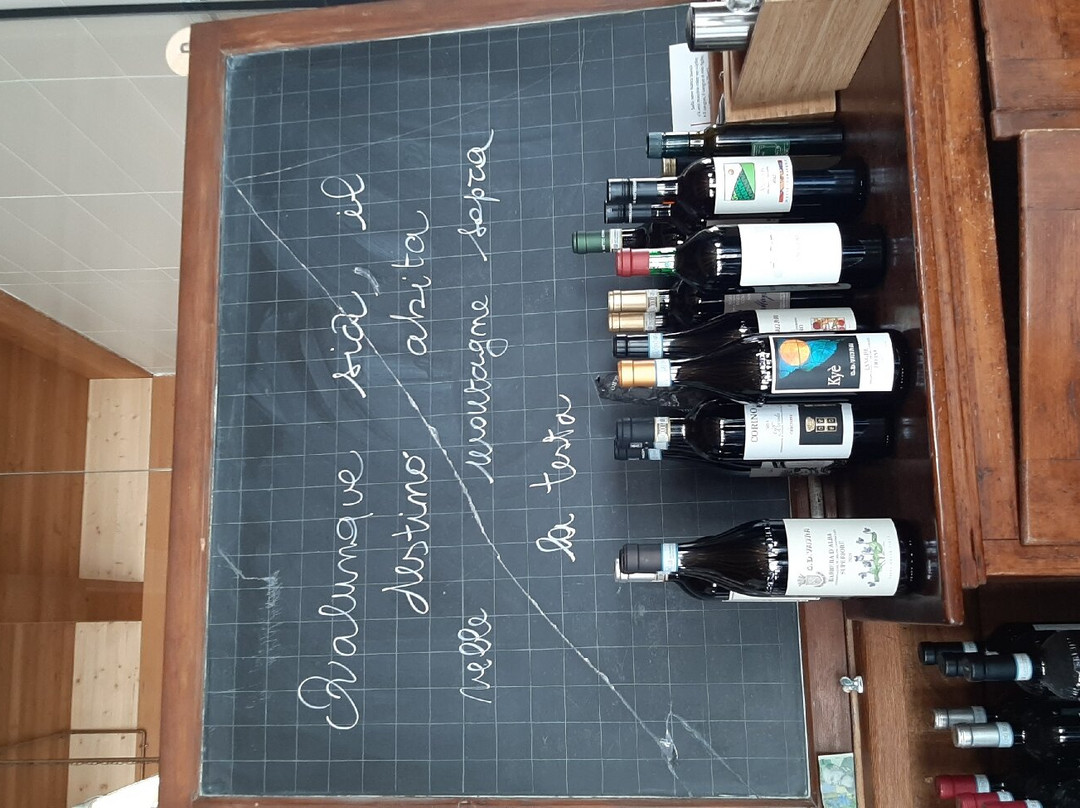 Qualunque sia il
destino abita
nelle montagne sopra
la testa
Kyè
G.D. VAJRA
CORINO
G.D. VAJRA
BARBERA D'ALBA
SUPERIORE